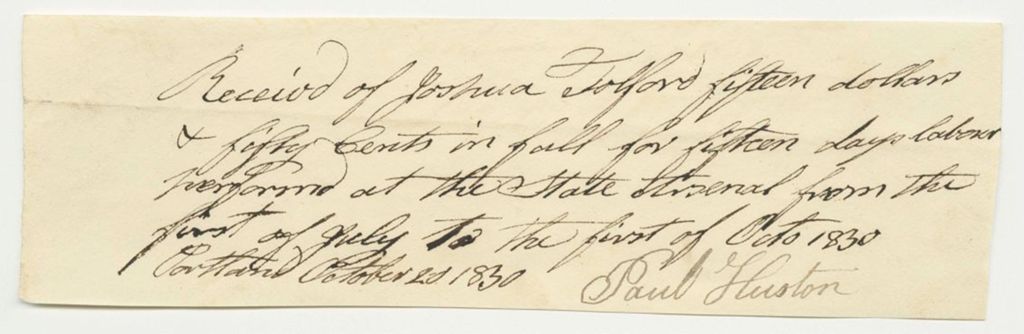 Receivd of Joshua Tolford fifteen dollars
& fifty Cents in full for fifteen days labour
performd at the State Arsenal from the
first of July to the first of Octo 1830
Portland October 20 1830 Paul Huston